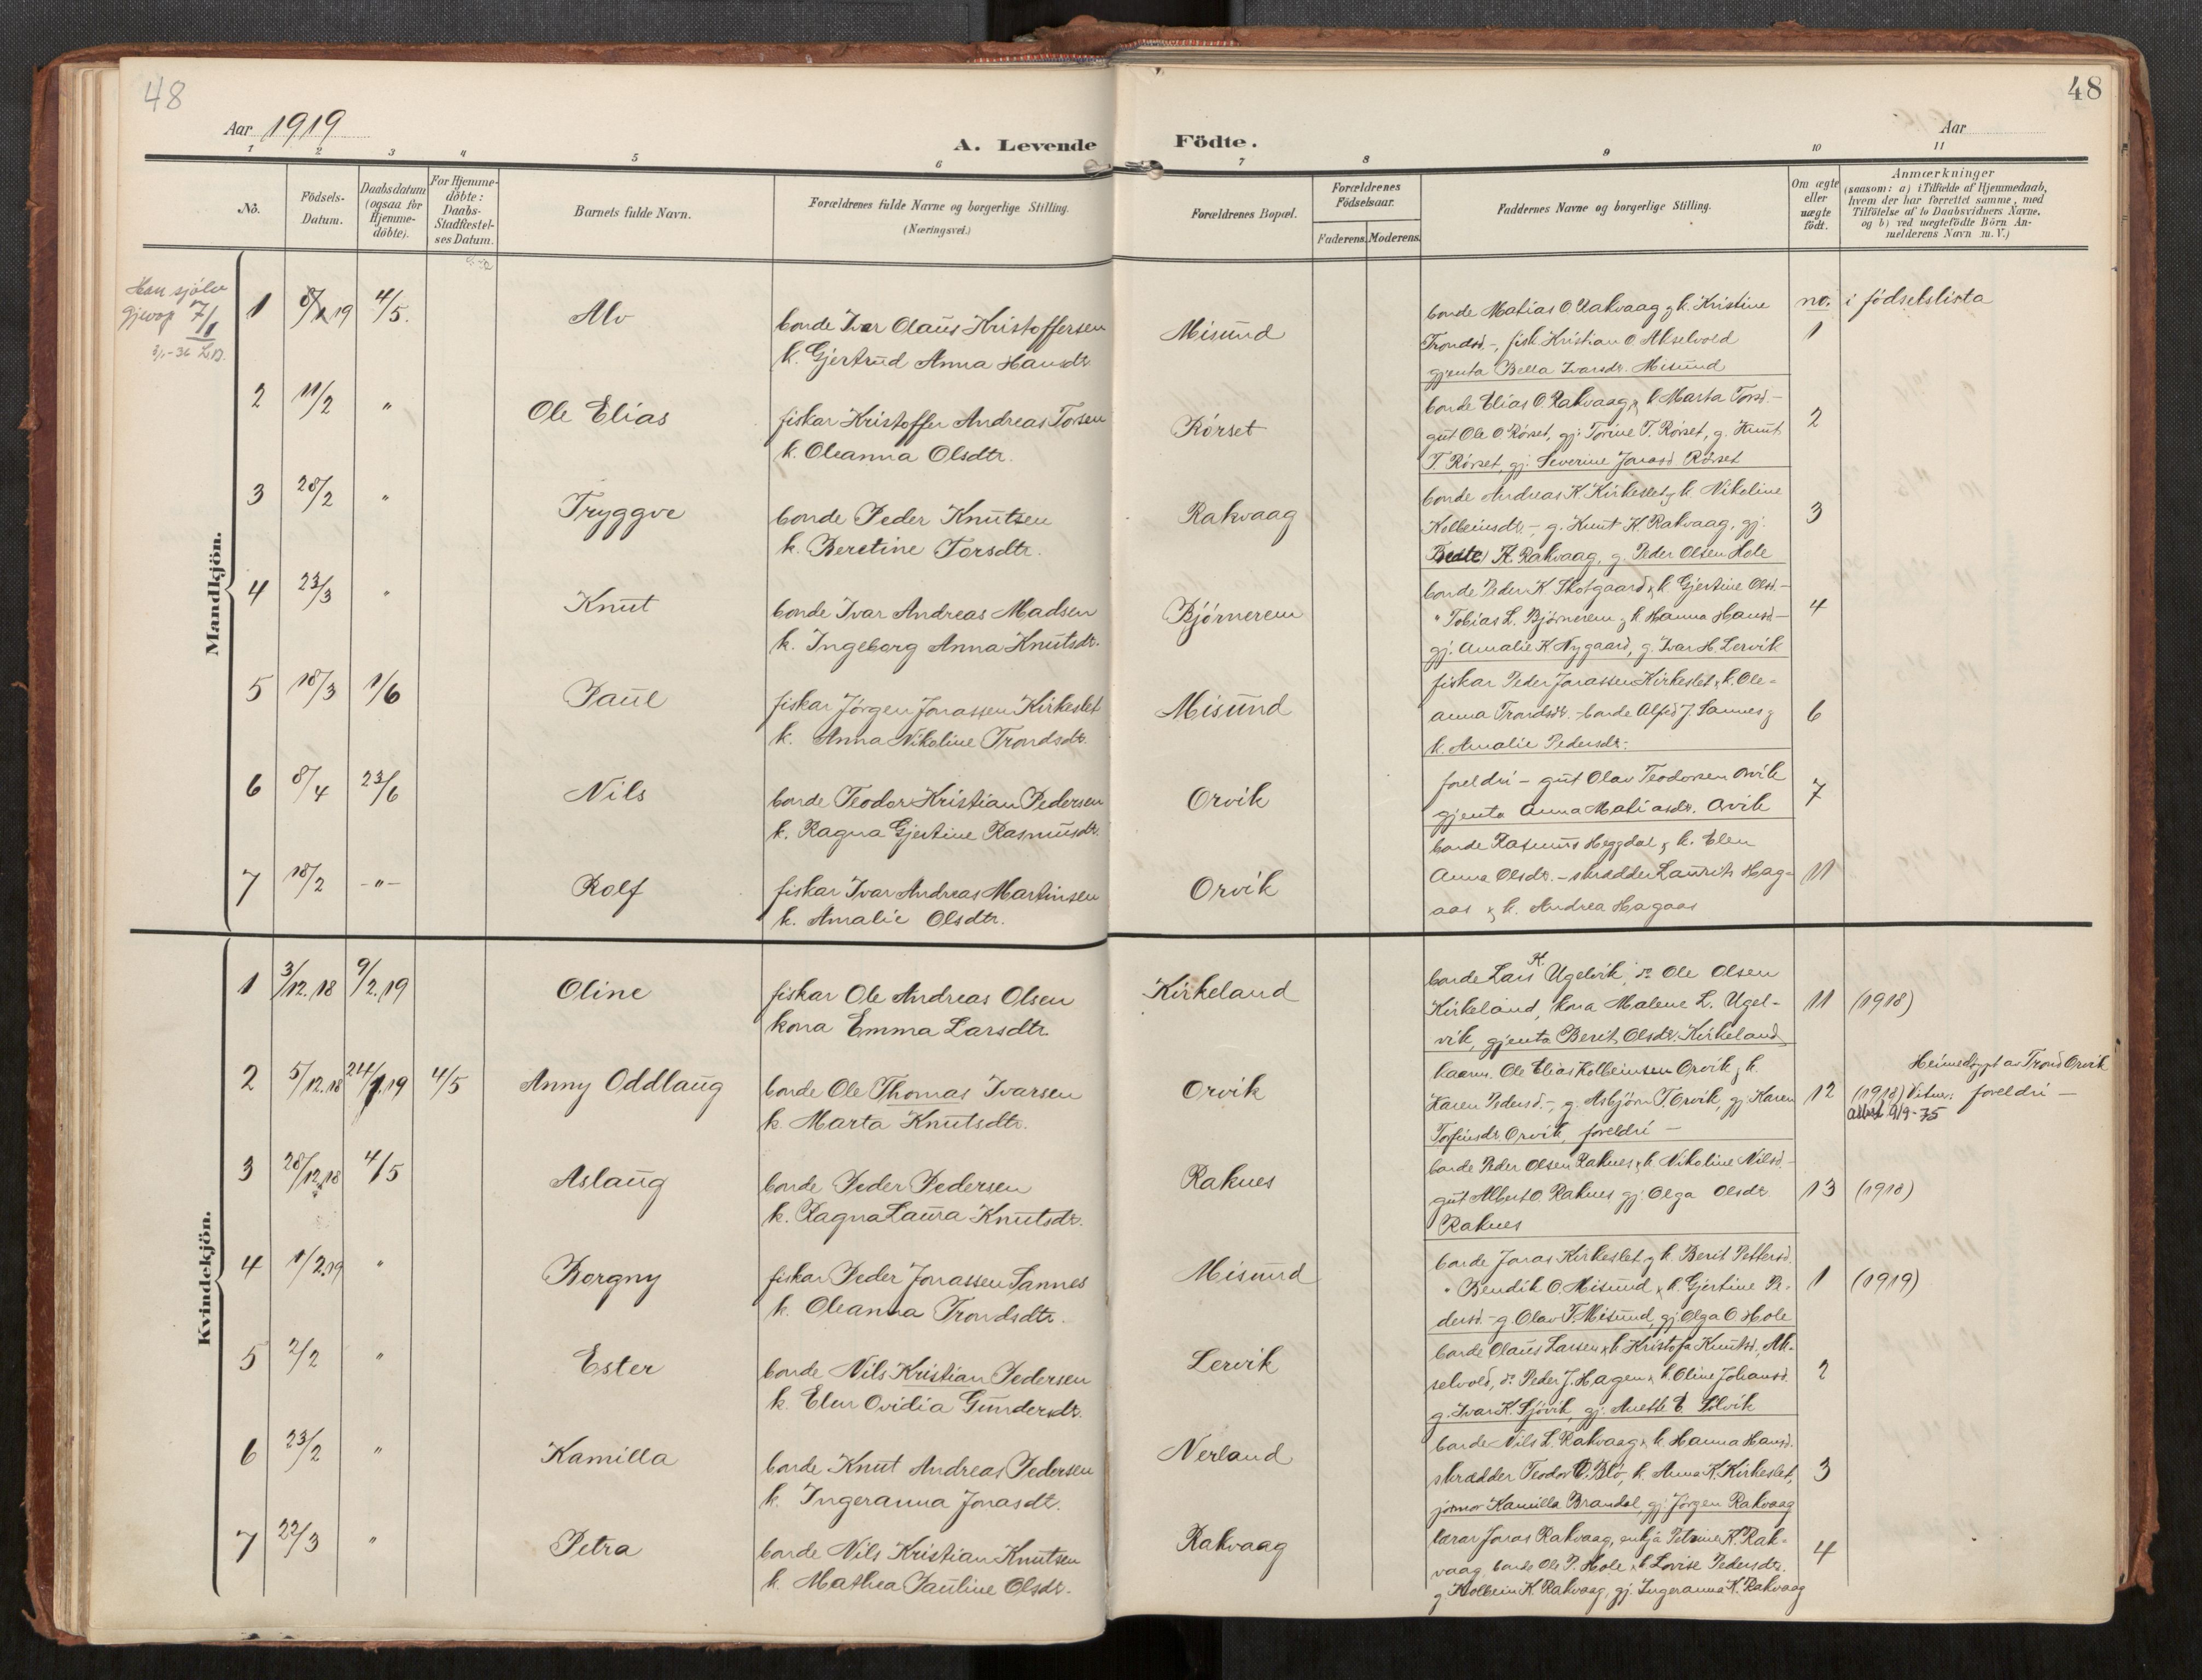 48
Aar 1919
A. Levende
1 2 3 4 5 6
No.
Födsels-
Datum.
Daabsdatum
(ogsaa for
Hjemme-
döbte).
For Hjemme-
döbte:
Daabs-
Stadfæstel-
ses Datum.
Barnets fulde Navn.
Forældrenes fulde Navne og borgerlige Stilling.
(Næringsvei.)
Mandkjön.
Han sjølv
7/1
1 8/1 19 4/5. Alv bonde Ivar Olaus Kristoffersen
k. Gjertrud Anna Hansdt.
2 11/2 " Ole Elias fiskar Kristoffer Andreas Torsen
k. Oleanna Olsdtr.
3 28/2 " Tryggve bonde Peder Knutsen
k. Beretine Torsdtr.
4 23/3 " Knut bonde Ivar Andreas Madsen
k. Ingeborg Anna Knutsdt.
5 18/3 1/6 Paul fiskar Jörgen Jonassen Kirkeslet
k. Anna Nikoline Trondsdt.
6 8/4 23/6 Nils bonde Teodor Kristian Pedersen
k. Ragna Gjertine Rasmusdt.
7 18/2 -"- Rolf fiskar Ivar Andreas Martinsen
k. Amalie Olsdtr.
Kvindekjön.
1 3/12.18 9/2.19 Oline fiskar Ole Andreas Olsen
kona Emma Larsdtr.
2 5/12.18 24/1.19 4/5 Anny Oddlaug bonde Ole Thomas Ivarsen
k. Marta Knutsdtr.
3 28/12.18 4/5 Aslaug bonde Peder Pedersen
k. Ragna Laura Knutsdt.
4 1/2.19 " Borgny fiskar Peder Jonassen Sannes
k. Oleanna Trondsdtr.
5 2/2 " Ester bonde Nils Kristian Pedersen
k. Elen Ovidia Gundersdt.
6 23/2 " Kamilla bonde Knut Andreas Pedersen
k. Ingeranna Jonasdt.
7 22/3 " Petra bonde Nils Kristian Knutsen
k. Mathea Pauline Olsdt.
48
Födte.
Aar
7 8 9 10 11
Forældrenes Bopæl.
Forældrenes
Födselsaar.
Faderens. Moderens.
Faddernes Navne og borgerlige Stilling.
Om ægte
eller
uægte
födt.
Anmærkninger
(saasom: a) i Tilfælde af Hjemmedaab,
hvem der har forrettet samme, med
Tilföielse af to Daabsvidners Navne,
og b) ved uægtefödte Börn An-
melderens Navn m. V.)
bonde Matias O. Rakvaag & k. Kristine no. i födselslista
Misund Trondsd. -, fisk. Kristian O. Akselvold 1
gjenta Bella Ivarsdr. Misund
bonde Elias O. Rakvaag & k. Marta Torsd. -
Rörset gut Ole O Rörset, gj. Torine T. Rörset, g. Knut 2
T. Rörset, gj. Severine Jonasd. Rörset
bonde Andreas K. Kirkeslet & k. Nikoline
Rakvaag Kolbeinsdt. -, g. Knut K. Rakvaag, gj. 3
K. Rakvaag, g. Peder Olsen Hole
bonde Peder K. Skotgaard & k. Gjertine Olsd. -
Björnerem " Tobias L. Björnerem & k. Hanna Hansd. - 4
gj. Amalie K Nygaard, g. Ivar H. Lervik
fiskar Peder Jonassen Kirkeslet & k. Ole-
Misund anna Trondsdt. - bonde Alfred J. Sannes & 6
k. Amalie Pedersdt. -
foreldri - gut Olav Teodorsen Orvik
Orvik gjenta Anna Matiasdt. Orvik 7
bonde Rasmus Heggdal & k. Elen
Orvik Anna Olsdt. - skrædder Laurits Hag- 11
aas & k. Andrea Hagaas
bonde Lars K. Ugelvik, do Ole Olsen
Kirkeland Kirkeland, kona Malene L. Ugel- 11 (1918)
vik, gjenta Berit Olsdt. Kirkeland
Ole Elias Kolbeinsen Orvik & k. Heimedöypt av Trond Orvik
Orvik Karen Pedersd. -, g. Asbjörn T. Orvik, gj. Karen 12 (1918) Vitne: foreldri -
Torfinsdt. Orvik, foreldri - 9/9-75
bonde Peder Olsen Raknes & k. Nikoline Nilsd. -
Raknes gut Albert O. Raknes gj. Olga Olsdt. 13 (1918)
Raknes
bonde Jonas Kirkeslet & k. Berit Pettersd.
Misund " Bendik O. Misund & k. Gjertine Pe- 1 (1919)
dersd. - g. Olav T. Misund, gj. Olga O Hole
bonde Olaus Larsen & k. Kristofa Knutsd. Ak-
Lervik selvold, do Peder J. Hagen & k. Oline Johansd. 2
g. Ivar K. Sjövik, gj. Anette E. Solvik
bonde Nils L. Rakvaag & k. Hanna Hansd.
Nerland skrædder Teodor O. Blö, k. Anna K. Kirkeslet, 3
jomor Kamilla Brandal, gj. Jörgen Rakvaag
lærar Jonas Rakvaag, enkja Petrine K. Rak-
Rakvaag vaag, bonde Ole P. Hole & k. Lovise Pedersdt. 4
g Kolbein K. Rakvaag, gj. Ingeranna K. Rakvaag